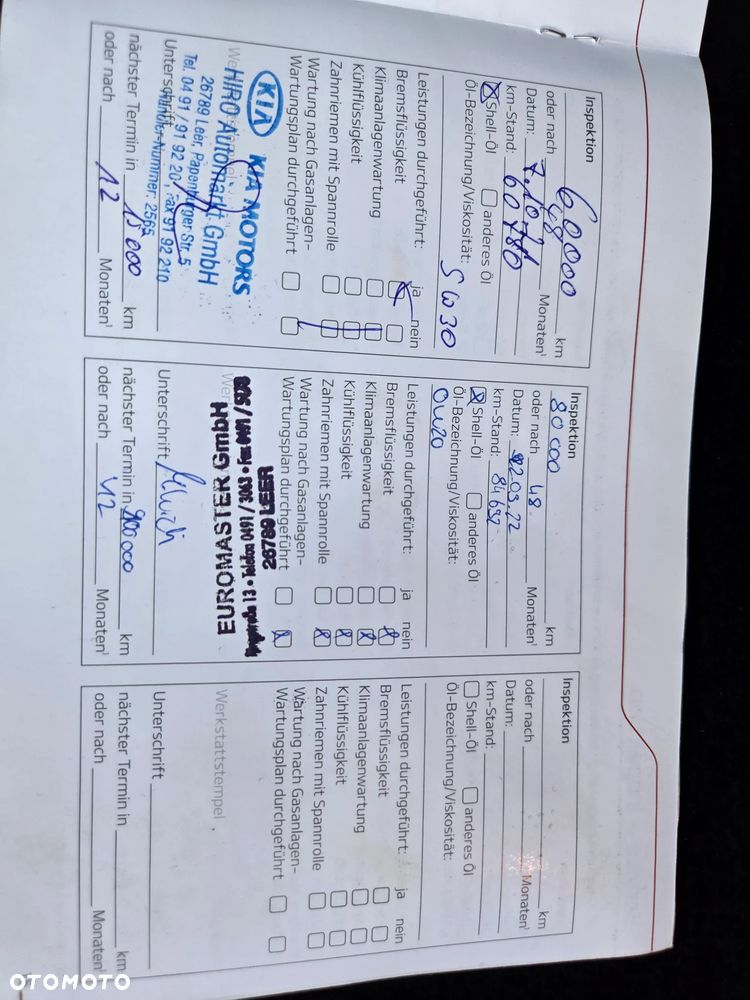 Inspektion
60000 km
oder nach 48 Monaten¹
Datum: 7.10.21
km-Stand: 60780
Shell-Öl anderes Öl
Öl-Bezeichnung/Viskosität:
5W30
Leistungen durchgeführt: ja nein
Bremsflüssigkeit
Klimaanlagenwartung
Kühlflüssigkeit
Zahnriemen mit Spannrolle
Wartung nach Gasanlagen-
Wartungsplan durchgeführt
KIA KIA MOTORS
HIRO Automarkt GmbH
26789 Leer, Papenburger Str. 5
Tel. 04 91 / 91 92 20, Fax 91 92 210
Händler-Nummer: 2565
Unterschrift
nächster Termin in 15000 km
oder nach 12 Monaten¹
Inspektion
80000 km
oder nach 48 Monaten¹
Datum: 02.03.22
km-Stand: 84652
Shell-Öl anderes Öl
Öl-Bezeichnung/Viskosität:
0W20
Leistungen durchgeführt: ja nein
Bremsflüssigkeit
Klimaanlagenwartung
Kühlflüssigkeit
Zahnriemen mit Spannrolle
Wartung nach Gasanlagen-
Wartungsplan durchgeführt
EUROMASTER GmbH
26789 LEER
Unterschrift
nächster Termin in 100000 km
oder nach 12 Monaten¹
Inspektion
km
oder nach Monaten¹
Datum:
km-Stand:
Shell-Öl anderes Öl
Öl-Bezeichnung/Viskosität:
Leistungen durchgeführt: ja nein
Bremsflüssigkeit
Klimaanlagenwartung
Kühlflüssigkeit
Zahnriemen mit Spannrolle
Wartung nach Gasanlagen-
Wartungsplan durchgeführt
Werkstattstempel
Unterschrift
nächster Termin in km
oder nach Monaten¹
OTOMOTO